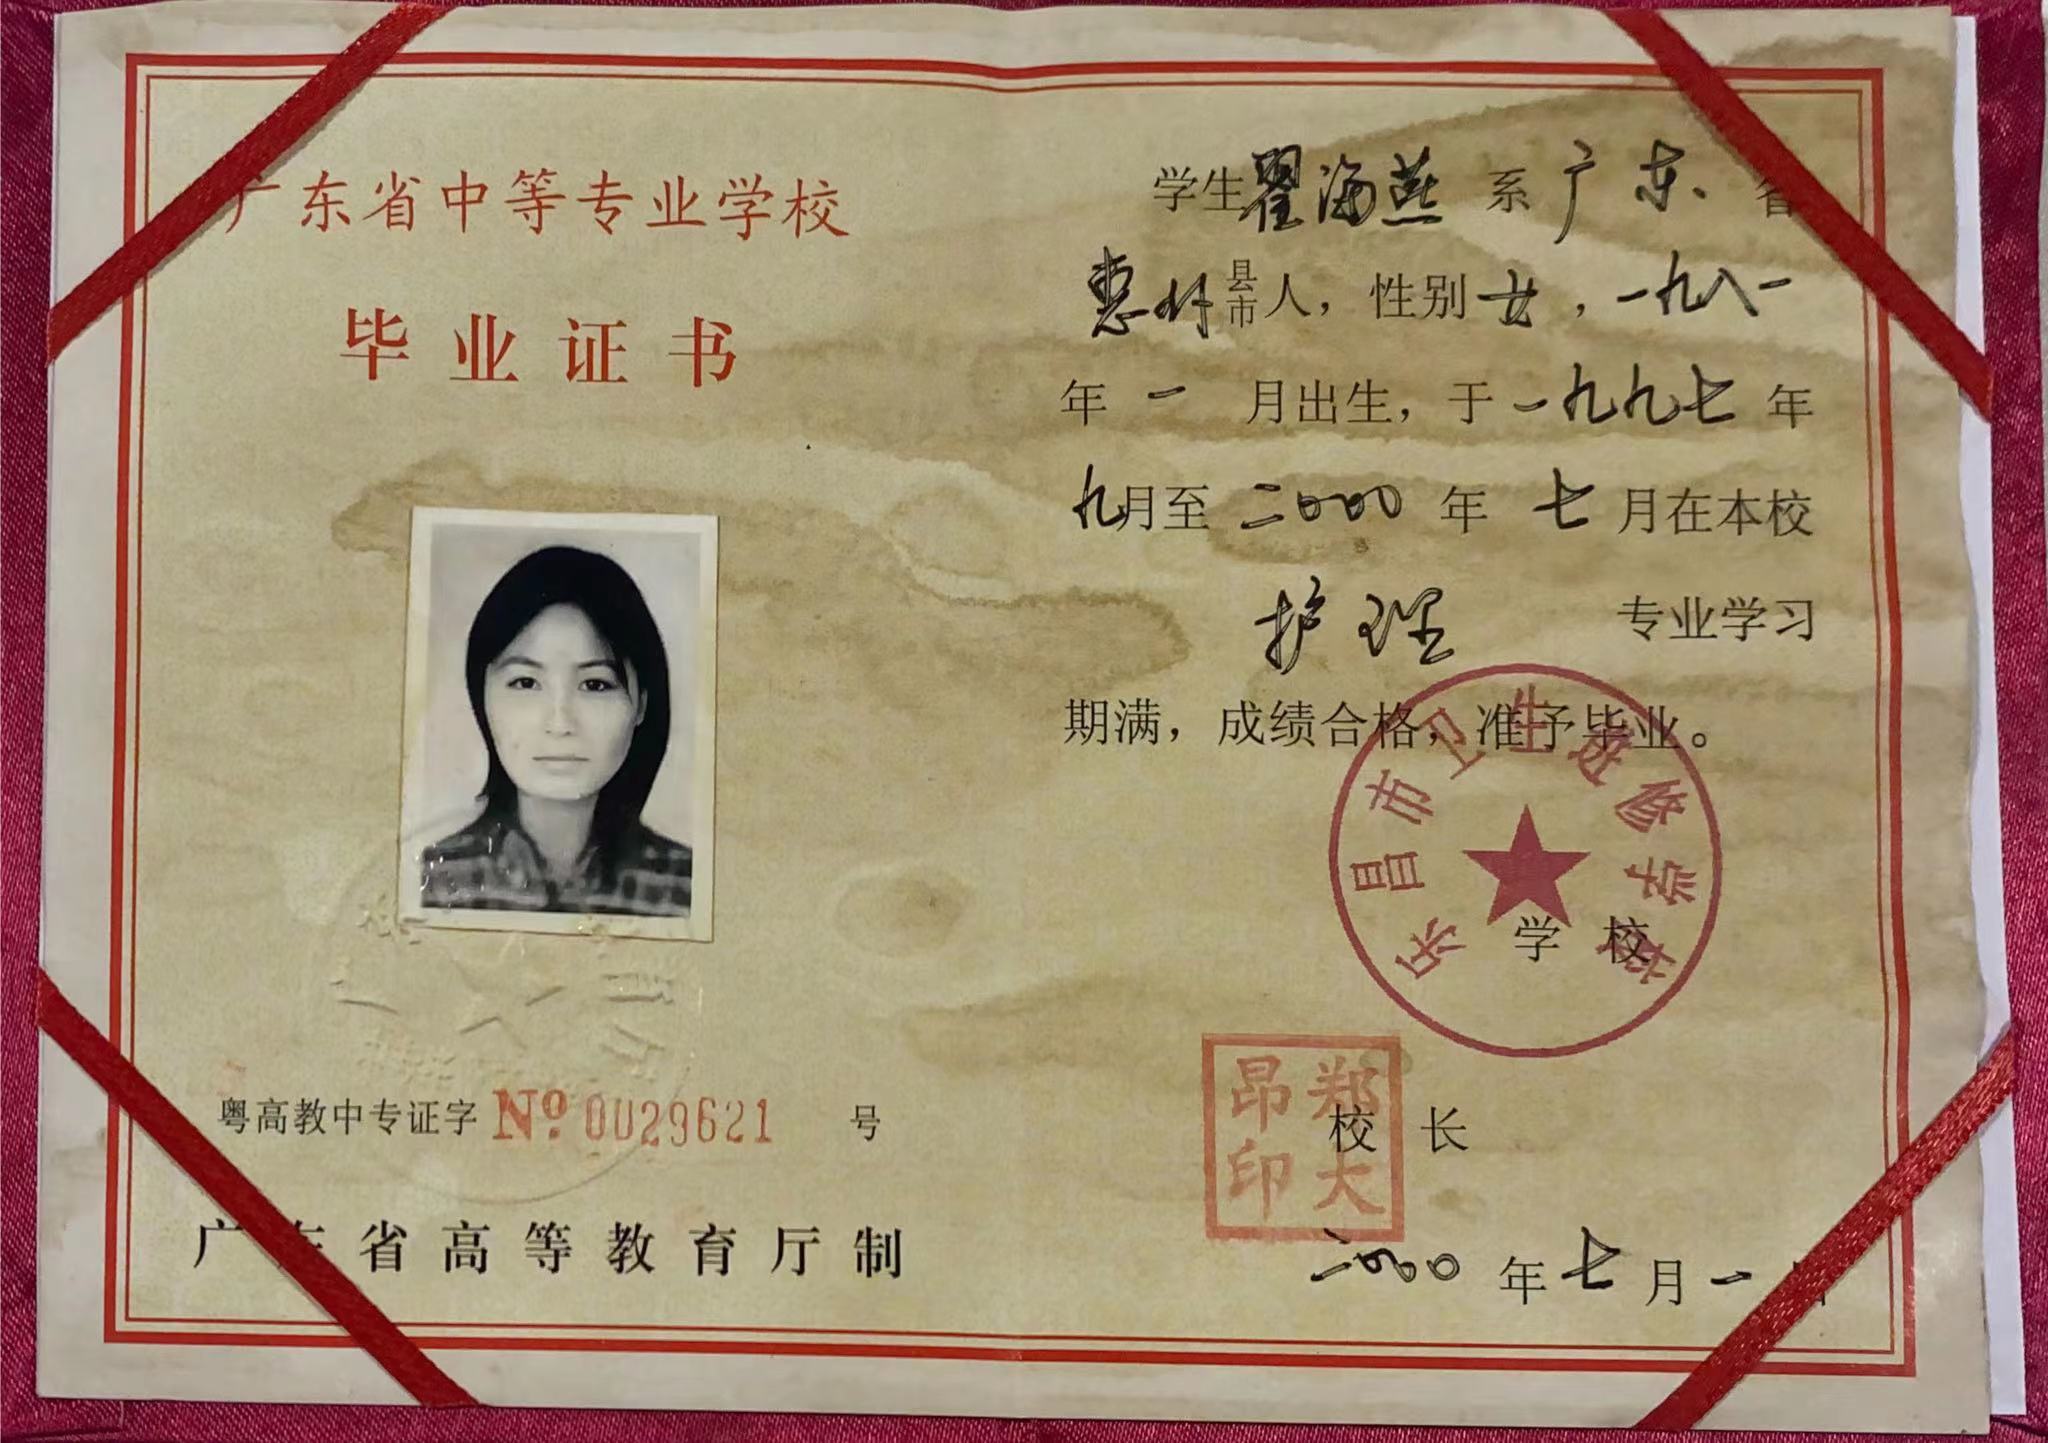 广东省中等专业学校
毕业证书
粤高教中专证字 No. 0029621 号
广东省高等教育厅制
学生翟海燕系广东省
惠州县市人，性别女，一九八一
年一月出生，于一九九七年
九月至二〇〇〇年七月在本校
护理专业学习
期满，成绩合格，准予毕业。
乐昌市卫生进修学校
学校
郑大昂印
校长
二〇〇〇年七月一日